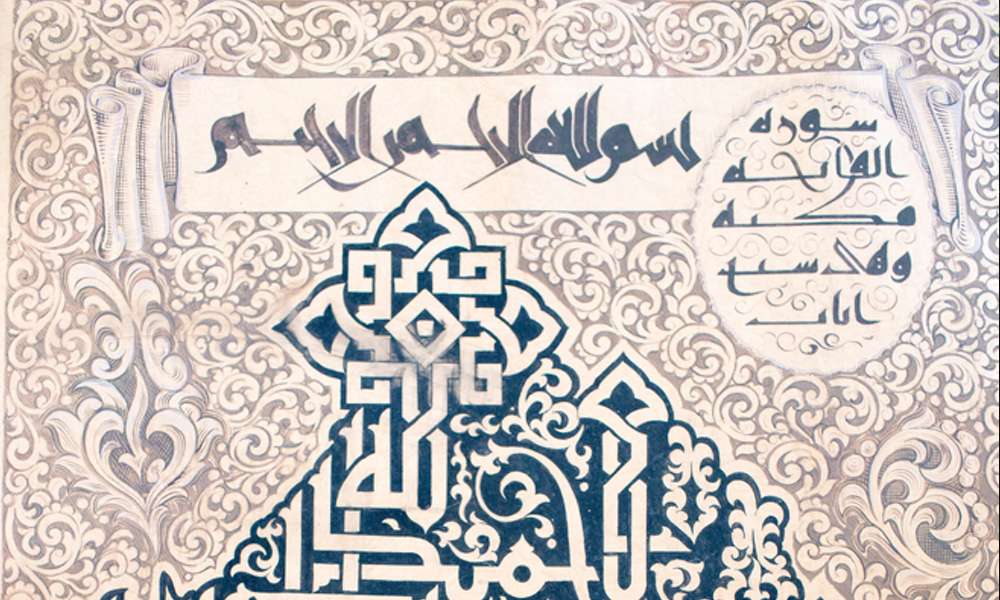 بسم الله الرحمن الرحيم
سورة
الفاتحة
مكية
وهي سبع
ايات
الحمد لله